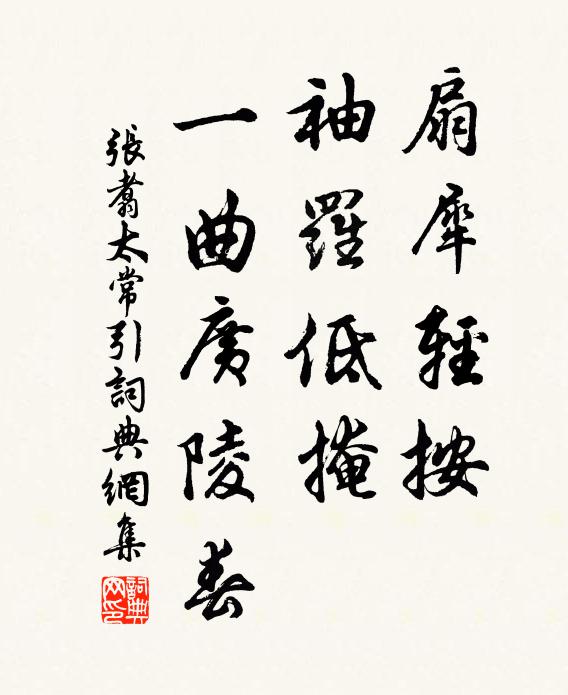 扇犀輕按
袖羅低掩
一曲廣陵春
張翥太常引詞典網集
詞典
网印